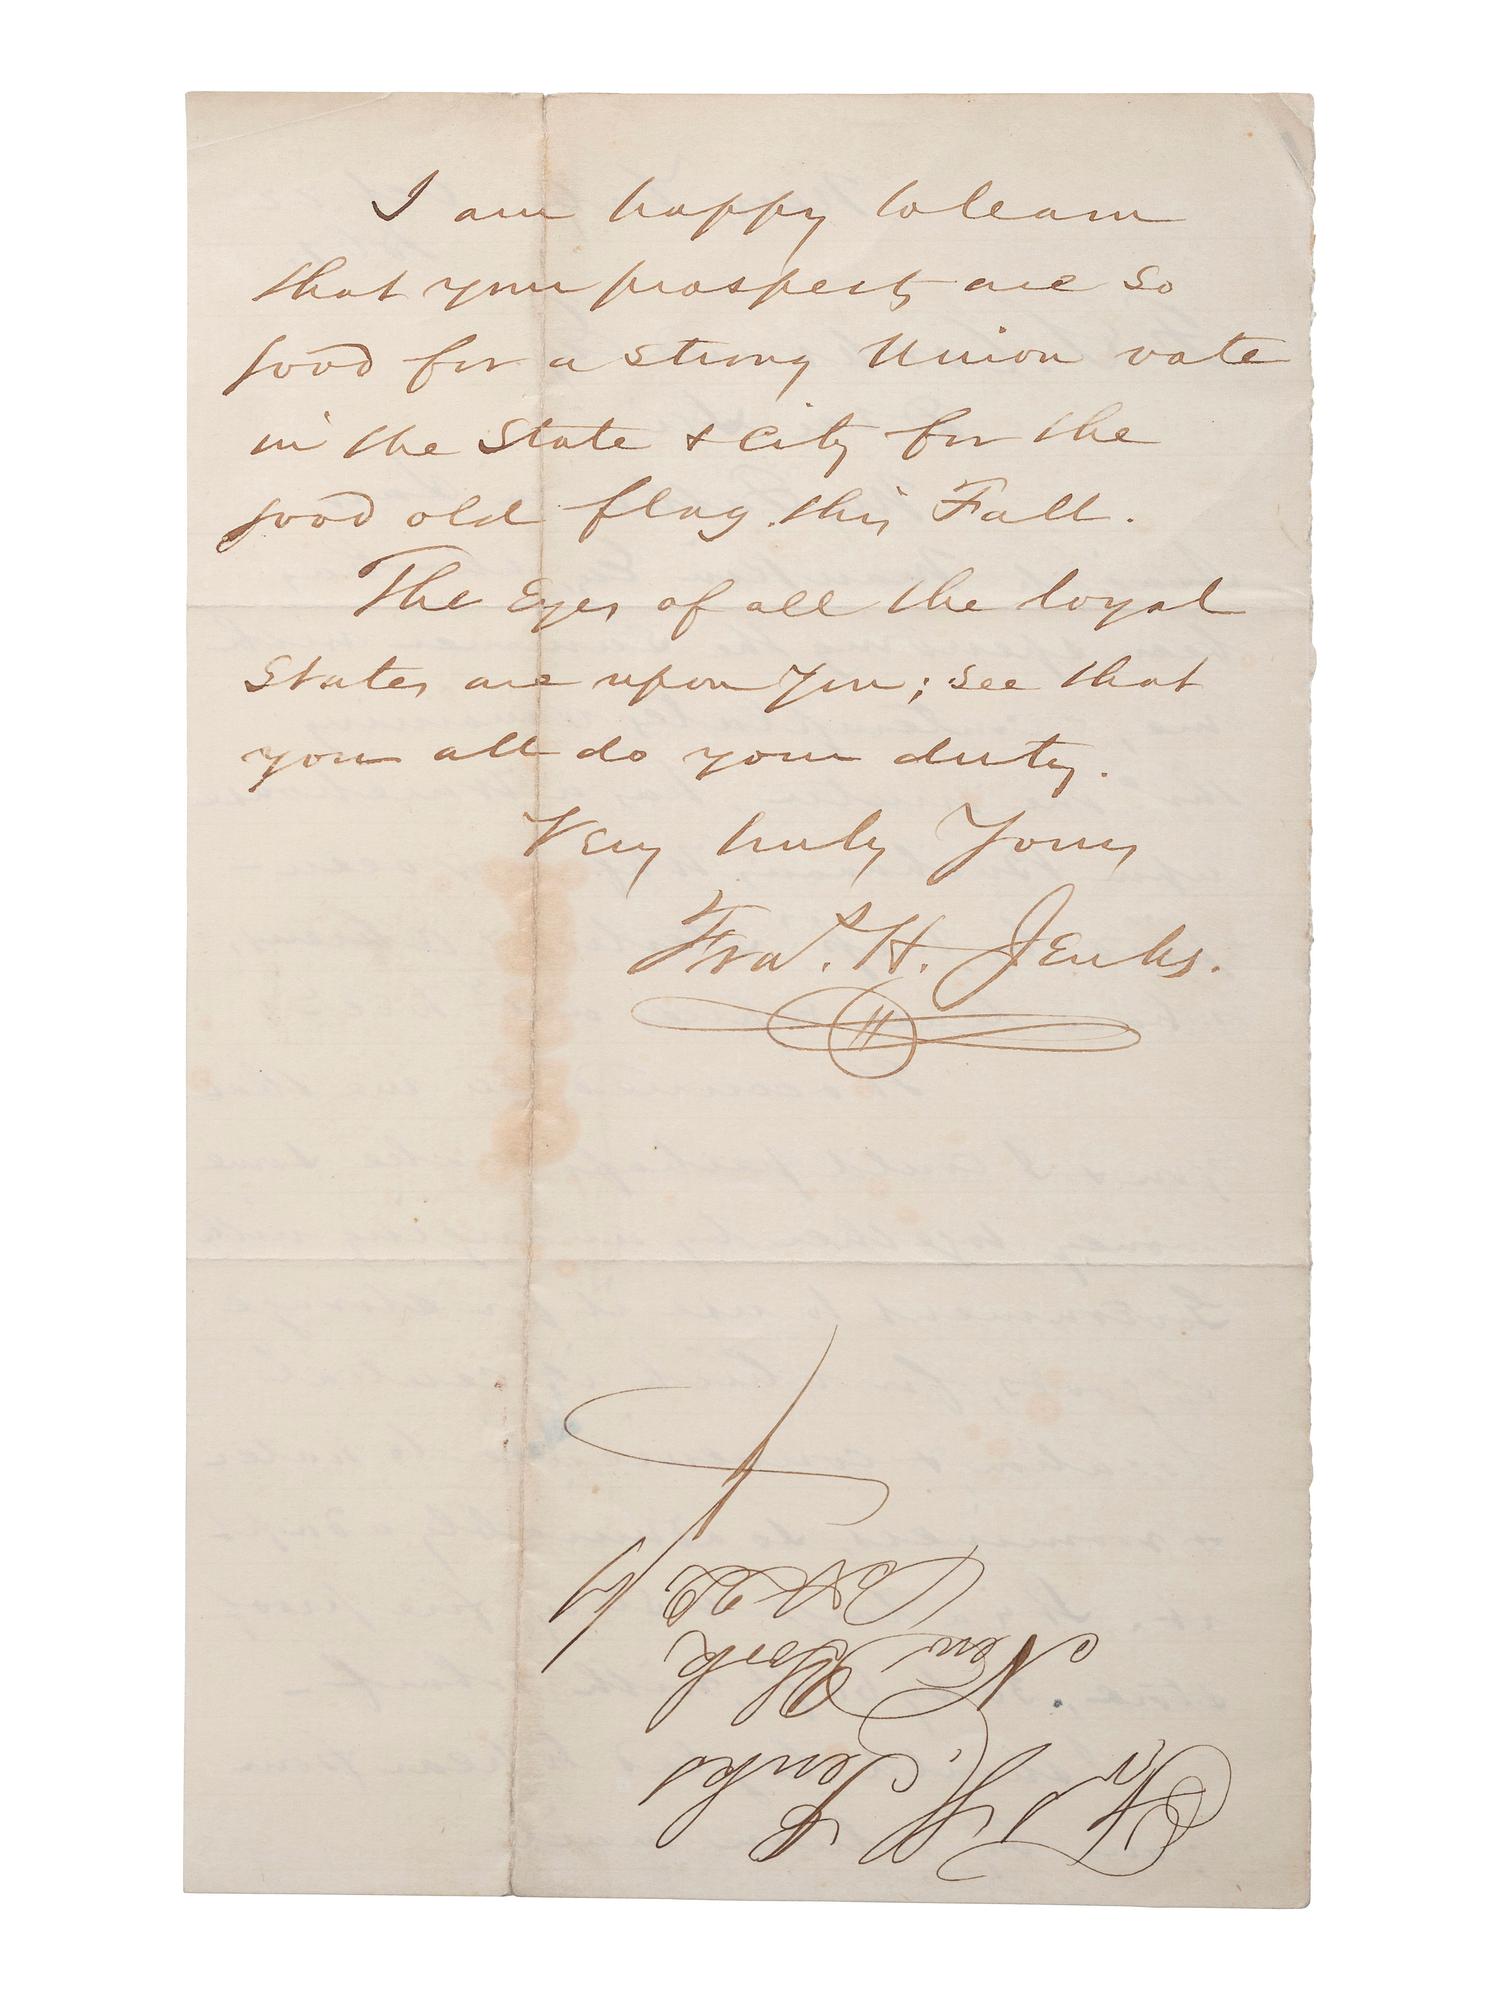 I am happy to learn
that your prospects are so
good for a strong Union vote
in the State & City for the
good old flag this Fall.
The Eyes of all the loyal
States are upon You; see that
you all do your duty.
Very truly Yours
Fras. H. Jenks.
H. Jenks
New York
Oct 22